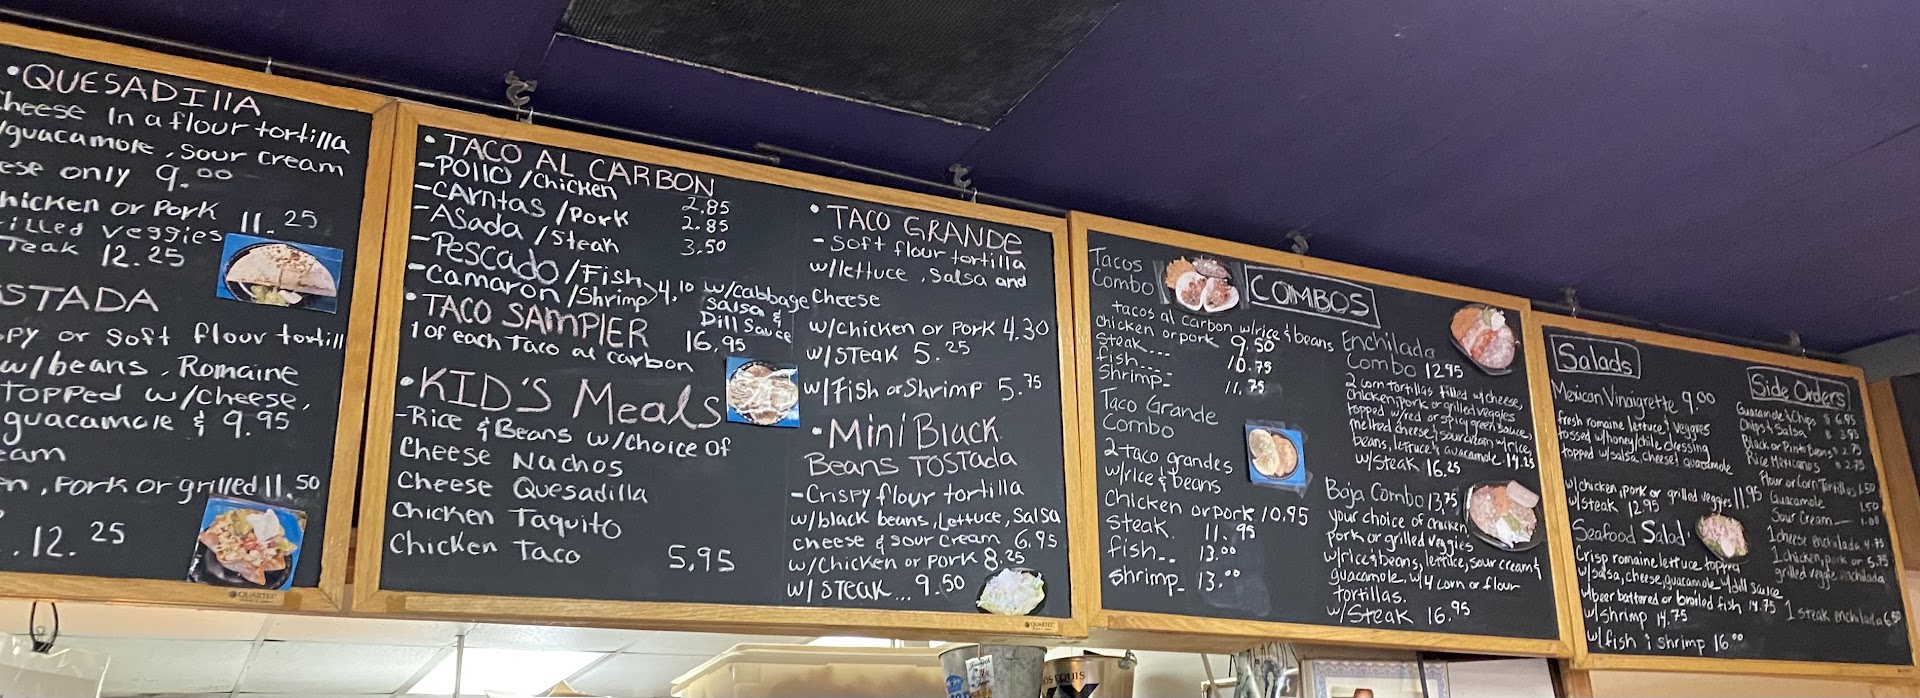 • QUESADIllA
Cheese In a flour tortilla
w/guacamole, sour cream
only 9.00
chicken or Pork 11.25
veggies
12.25
py or soft flour tortill
w/beans, Romaine
Topped w/cheese,
guacamole & 9.95
eam
, Pork or grilled 11.50
12.25
QUARTET
• TACO AL CARBON
- POllO/Chicken 2.85
- CArntas/Pork 2.85
- Asada/Steak 3.50
- Pescado/Fish
- Camaron/Shrimp > 4.10 w/cabbage
salsa &
Dill Sauce
• TACO SAMPlER 16.95
1 of each Taco al carbon
• KID'S Meals
- Rice & Beans w/choice of
Cheese Nachos
Cheese Quesadilla
Chicken Taquito
Chicken Taco 5.95
• TACO GRANDE
- Soft flour tortilla
w/lettuce, salsa and
Cheese
w/chicken or Pork 4.30
w/STeak 5.25
w/Fish or Shrimp 5.75
• Mini Black
Beans TOSTada
- Crispy flour tortilla
w/black beans, Lettuce, Salsa
cheese & sour cream 6.95
w/Chicken or Pork 8.25
w/STeak... 9.50
QUARTET
COMBOS
Tacos
Combo
tacos al carbon w/rice & beans
chicken or pork 9.50
steak....
fish.... 10.75
shrimp- 11.75
Taco Grande
Combo
2 taco grandes
w/rice & beans
Chicken or pork 10.95
steak. 11.95
fish-- 13.00
shrimp- 13.00
Enchilada
Combo 12.95
2 corn tortillas filled w/cheese,
chicken, pork or grilled veggies
topped w/red or spicy green sauce,
melted cheese & sour cream w/rice,
beans, lettuce & guacamole 14.25
w/steak 16.25
Baja Combo 13.75
your choice of chicken
pork or grilled veggies
w/rice & beans, lettuce, sour cream &
guacamole w/4 corn or flour
tortillas.
w/steak 16.95
Salads
Mexican Vinaigrette 9.00
fresh romaine lettuce & veggies
tossed w/honey/chile dressing
topped w/salsa, cheese & guacamole
w/chicken, pork or grilled veggies 11.95
w/steak 12.95
Seafood Salad
Crisp romaine lettuce topped
w/salsa, cheese, guacamole w/dill sauce
w/beer battered or broiled fish 14.75
w/shrimp 14.75
w/fish & shrimp 16.00
Side Orders
Guacamole & Chips $ 6.95
Chips & Salsa $ 3.95
Black or Pinto Beans $ 2.75
Rice Mexicanos $ 2.75
Flour or Corn Tortillas 1.50
Guacamole 1.50
Sour Cream 1.00
1 cheese enchilada 4.75
1 chicken, pork or 5.75
grilled veggie enchilada
1 steak enchilada 6.50